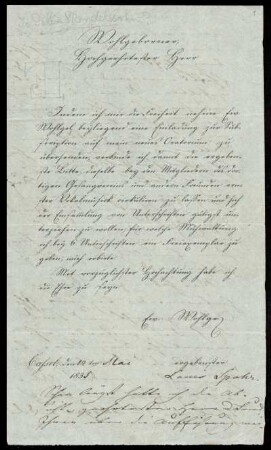 Wohlgeborner
Hochgeehrtester Herr
Indem ich mir die Freiheit nehme Ew
Wohlgeb beyliegend eine Einladung zur Sub-
scription auf mein neues Oratorium zu
übersenden, verbinde ich damit die ergeben-
ste Bitte, dieselbe bey den Mitgliedern des dor-
tigen Gesangvereins und andern Freunden
der Vokalmusik circuliren zu lassen und sich
der Einsammlung von Unterschriften gütigst
unterziehen zu wollen, für welche Mühwaltung
ich bey 6 Unterschriften ein Freiexemplar zu
geben, mich erbiete.
Mit vorzüglichster Hochachtung habe ich
die Ehre zu seyn
Ew. Wohlgeb
Cassel den Mai
1835
ergebenster
Louis Spohr.
Schon längst hatte ich die